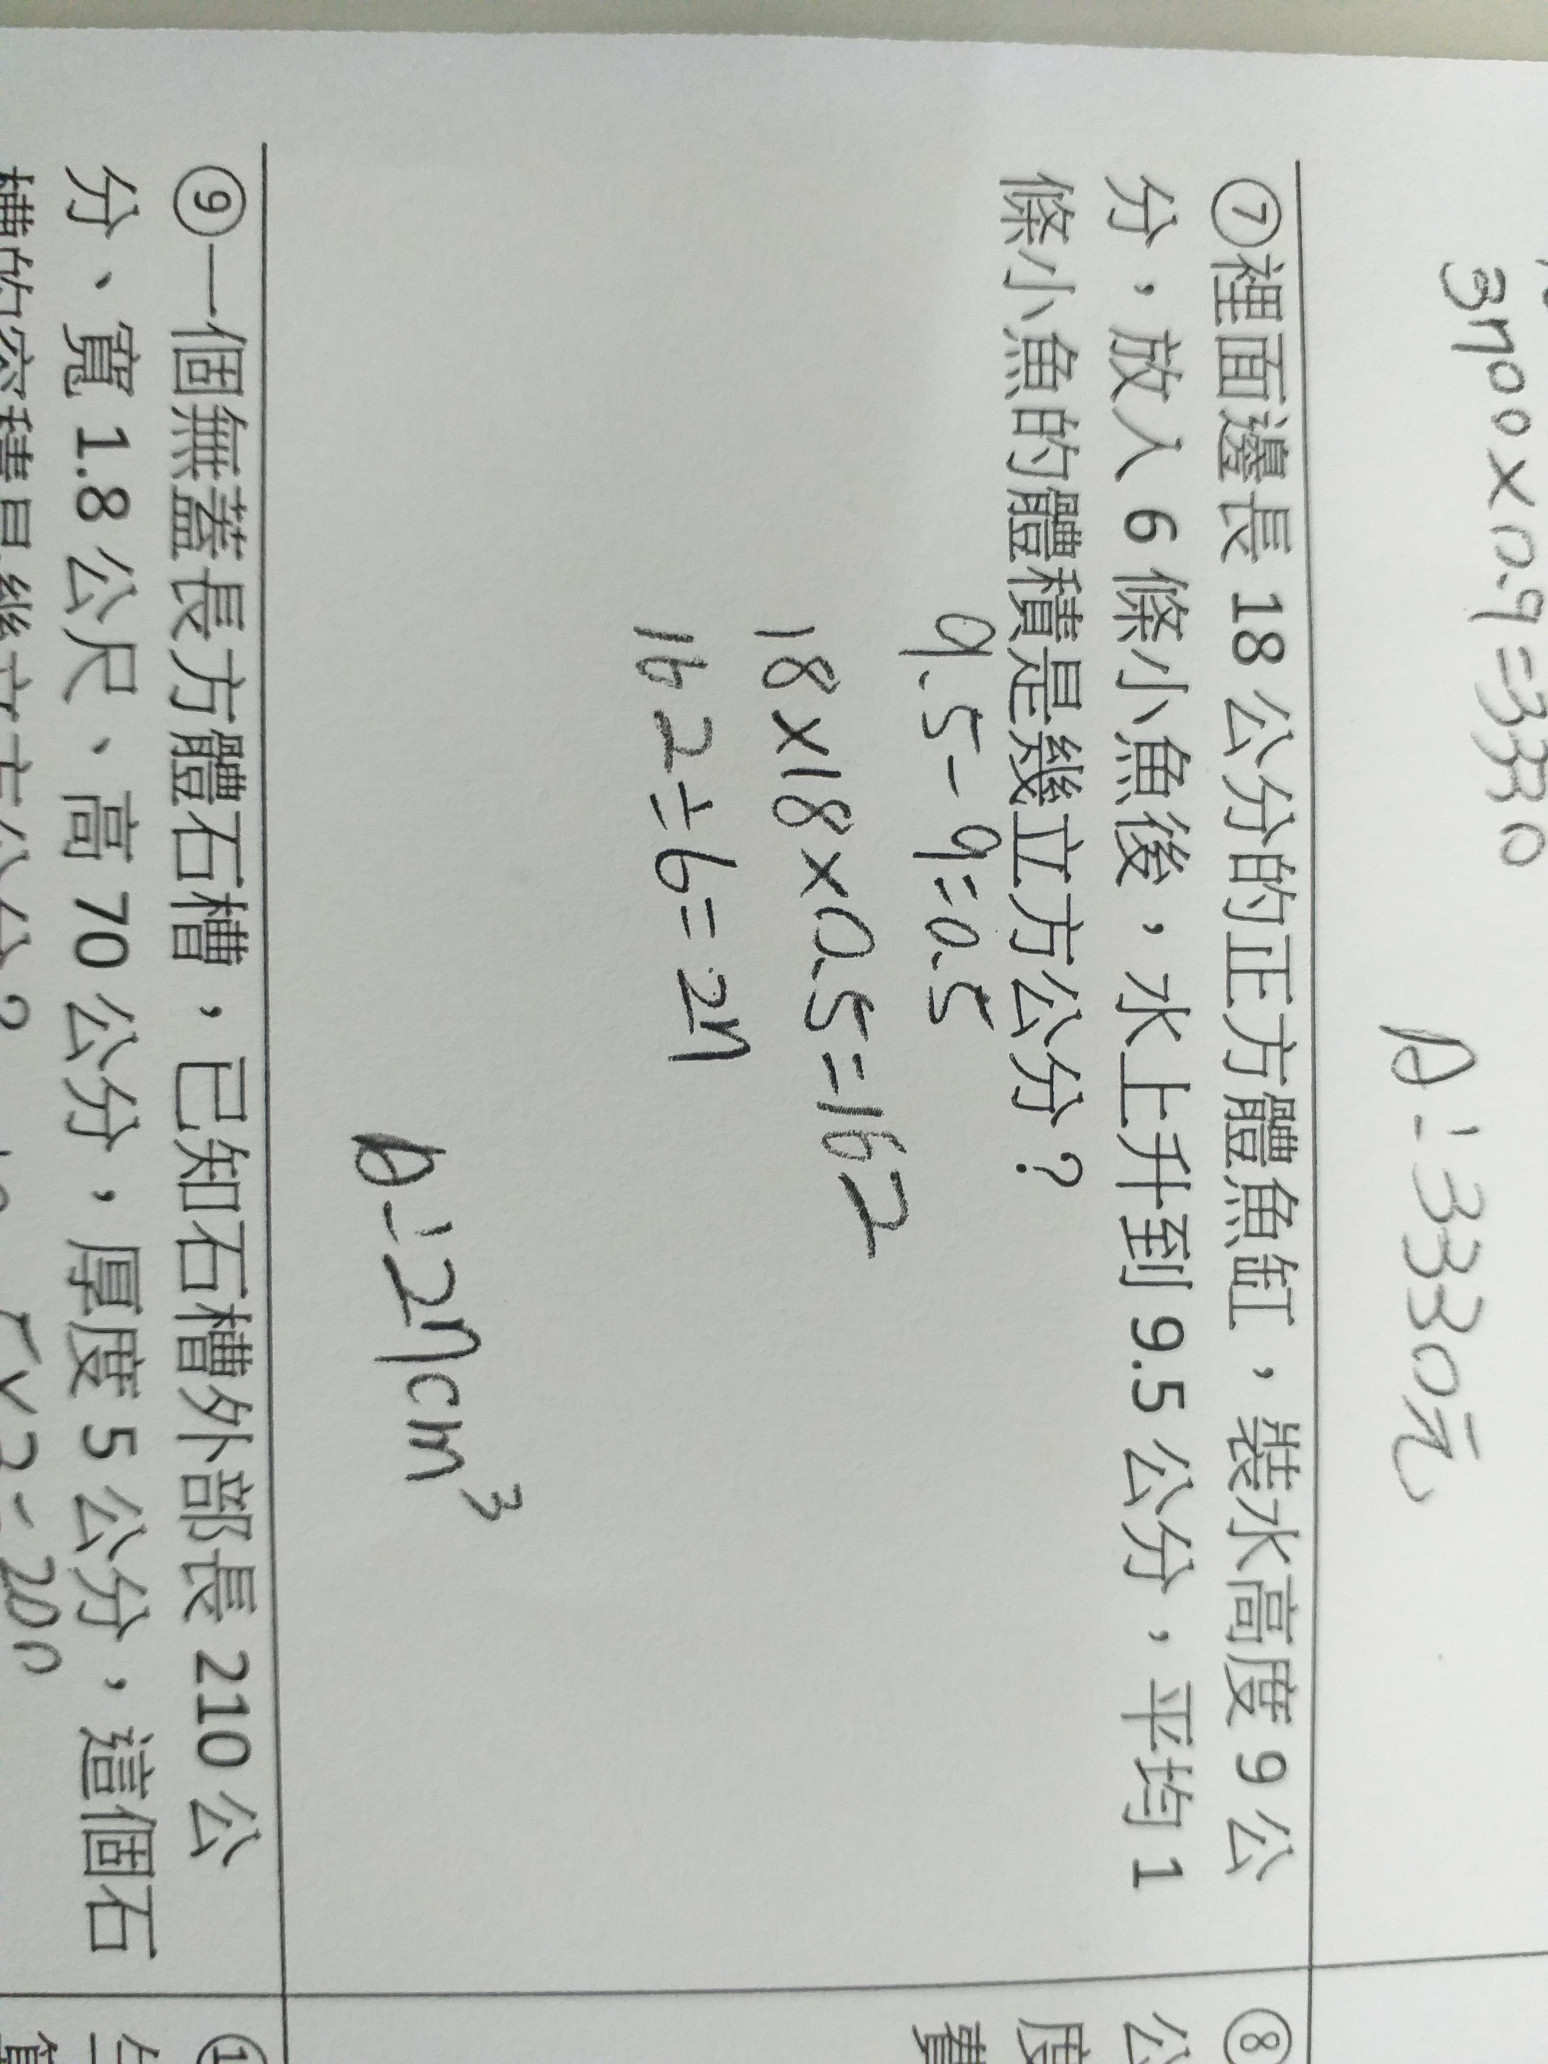 3700×0.9=3330
A:3330元
⑦裡面邊長 18 公分的正方體魚缸，裝水高度 9 公
分，放入 6 條小魚後，水上升到 9.5 公分，平均 1
條小魚的體積是幾立方公分？
9.5-9=0.5
18×18×0.5=162
162÷6=27
A:27cm³
⑧
公
度
費
⑨一個無蓋長方體石槽，已知石槽外部長 210 公
分、寬 1.8 公尺、高 70 公分，厚度 5 公分，這個石
槽的容積是幾立方公分？
5×2=200